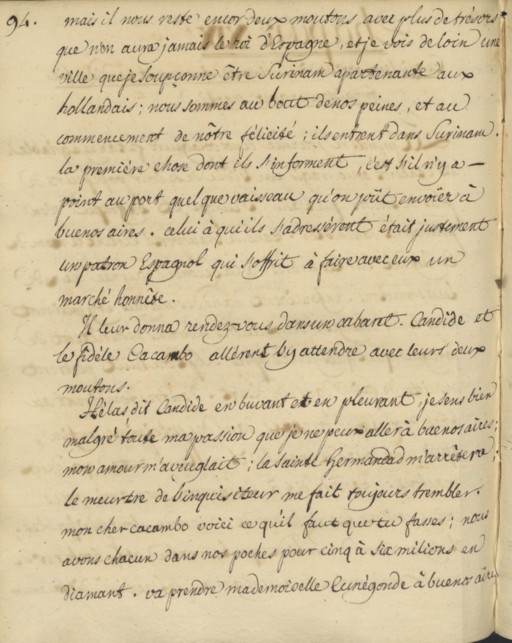 94. mais il nous reste encor deux moutons avec plus de trésors
que n'en aura jamais le roi d'Espagne, et je vois de loin une
ville que je soupçonne être Surinam apartenante aux
hollandais; nous sommes au bout de nos peines, et au
commencement de nôtre félicité; ils entrent dans Surinam.
la premiére chose dont ils s'informent, c'est s'il n'y a
point au port quelque vaisseau qu'on pût envoïer à
buenos aires. celui à qui ils s'adressérent était justement
un patron Espagnol qui s'offrit à faire avec eux un
marché honnête.
Il leur donna rendez-vous dans un cabaret. Candide et
le fidéle Cacambo allérent l'y attendre avec leurs deux
moutons.
Hélas dit Candide en buvant et en pleurant, je sens bien
malgré toute ma passion que je ne peux aller à buenos aires;
mon amour m'aveuglait; la sainte hermandad m'arrêtera;
le meurtre de l'inquisiteur me fait toujours trembler.
mon cher cacambo voici ce qu'il faut que tu fasses; nous
avons chacun dans nos poches pour cinq à six milions en
diamant. va prendre mademoiselle Cunégonde à buenos aires